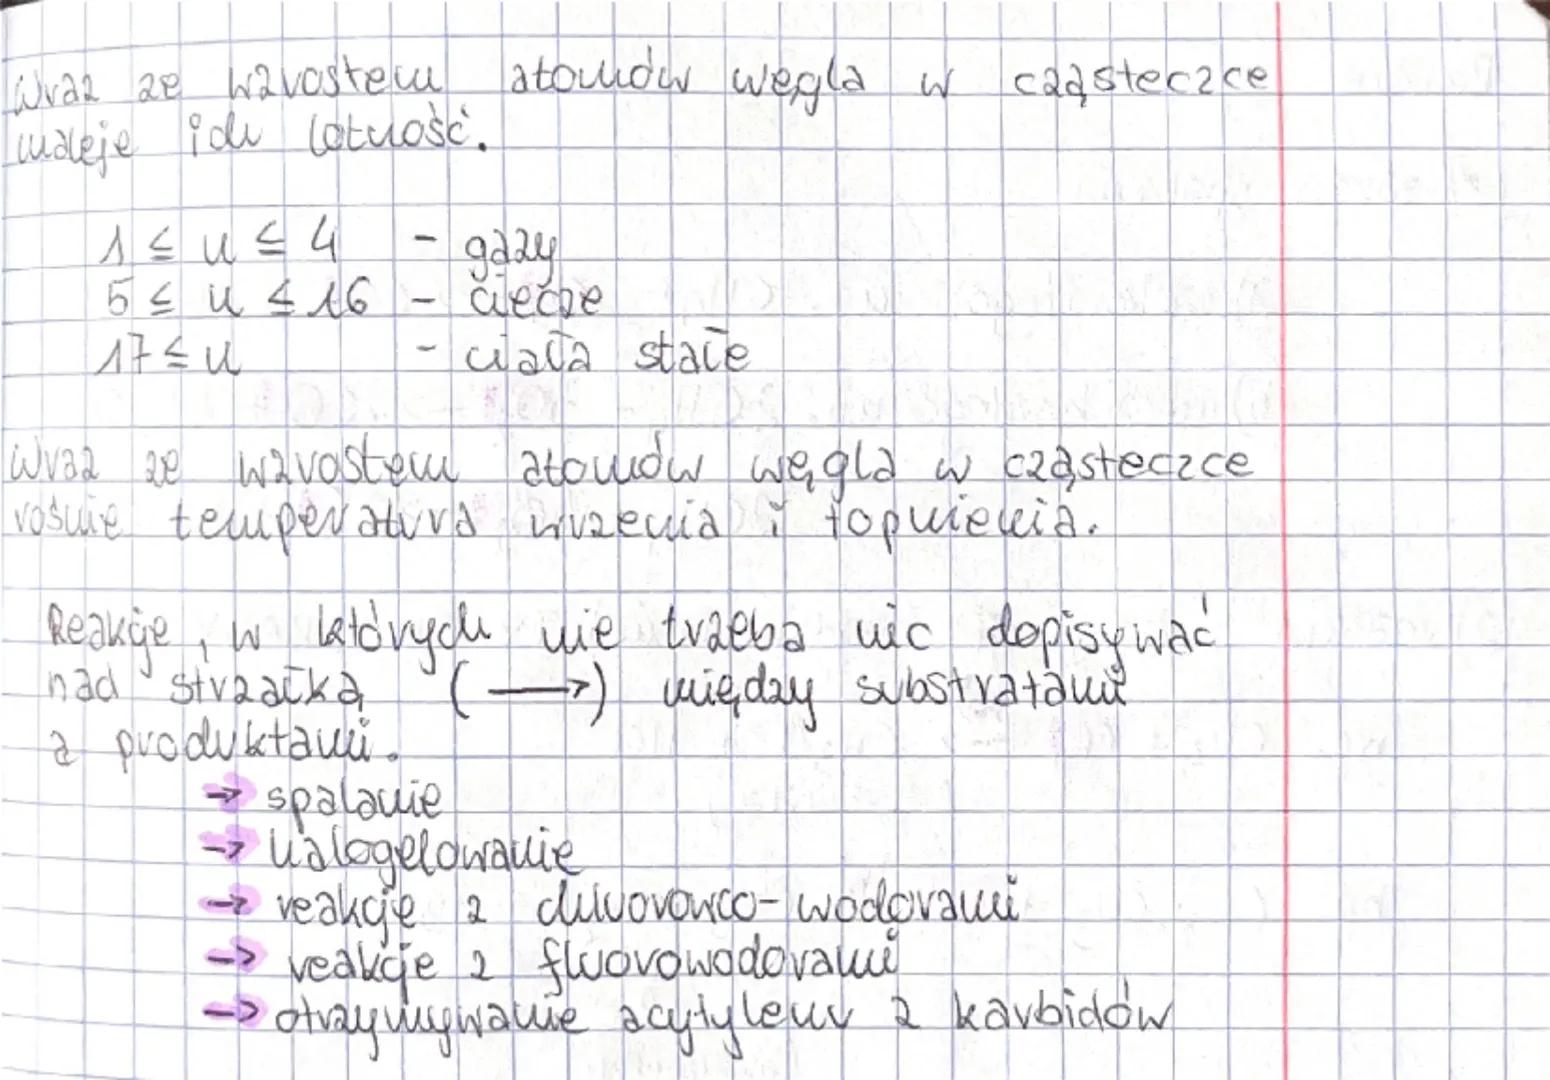 Wraz ze wzrostem atomów węgla w cząsteczce
maleje ich lotność.
1 ≤ n ≤ 4 - gazy
5 ≤ n ≤ 16 - ciecze
17 ≤ n - ciała stałe
Wraz ze wzrostem atomów węgla w cząsteczce
rośnie temperatura wrzenia i topnienia.
Reakcje, w których nie trzeba nic dopisywać
nad strzałką (→) między substratami
a produktami.
→ spalanie
→ halogelowanie
→ reakcje z chlorowco-wodorami
→ reakcje z fluorowodorami
→ otrzymywanie acytylenu z karbidów